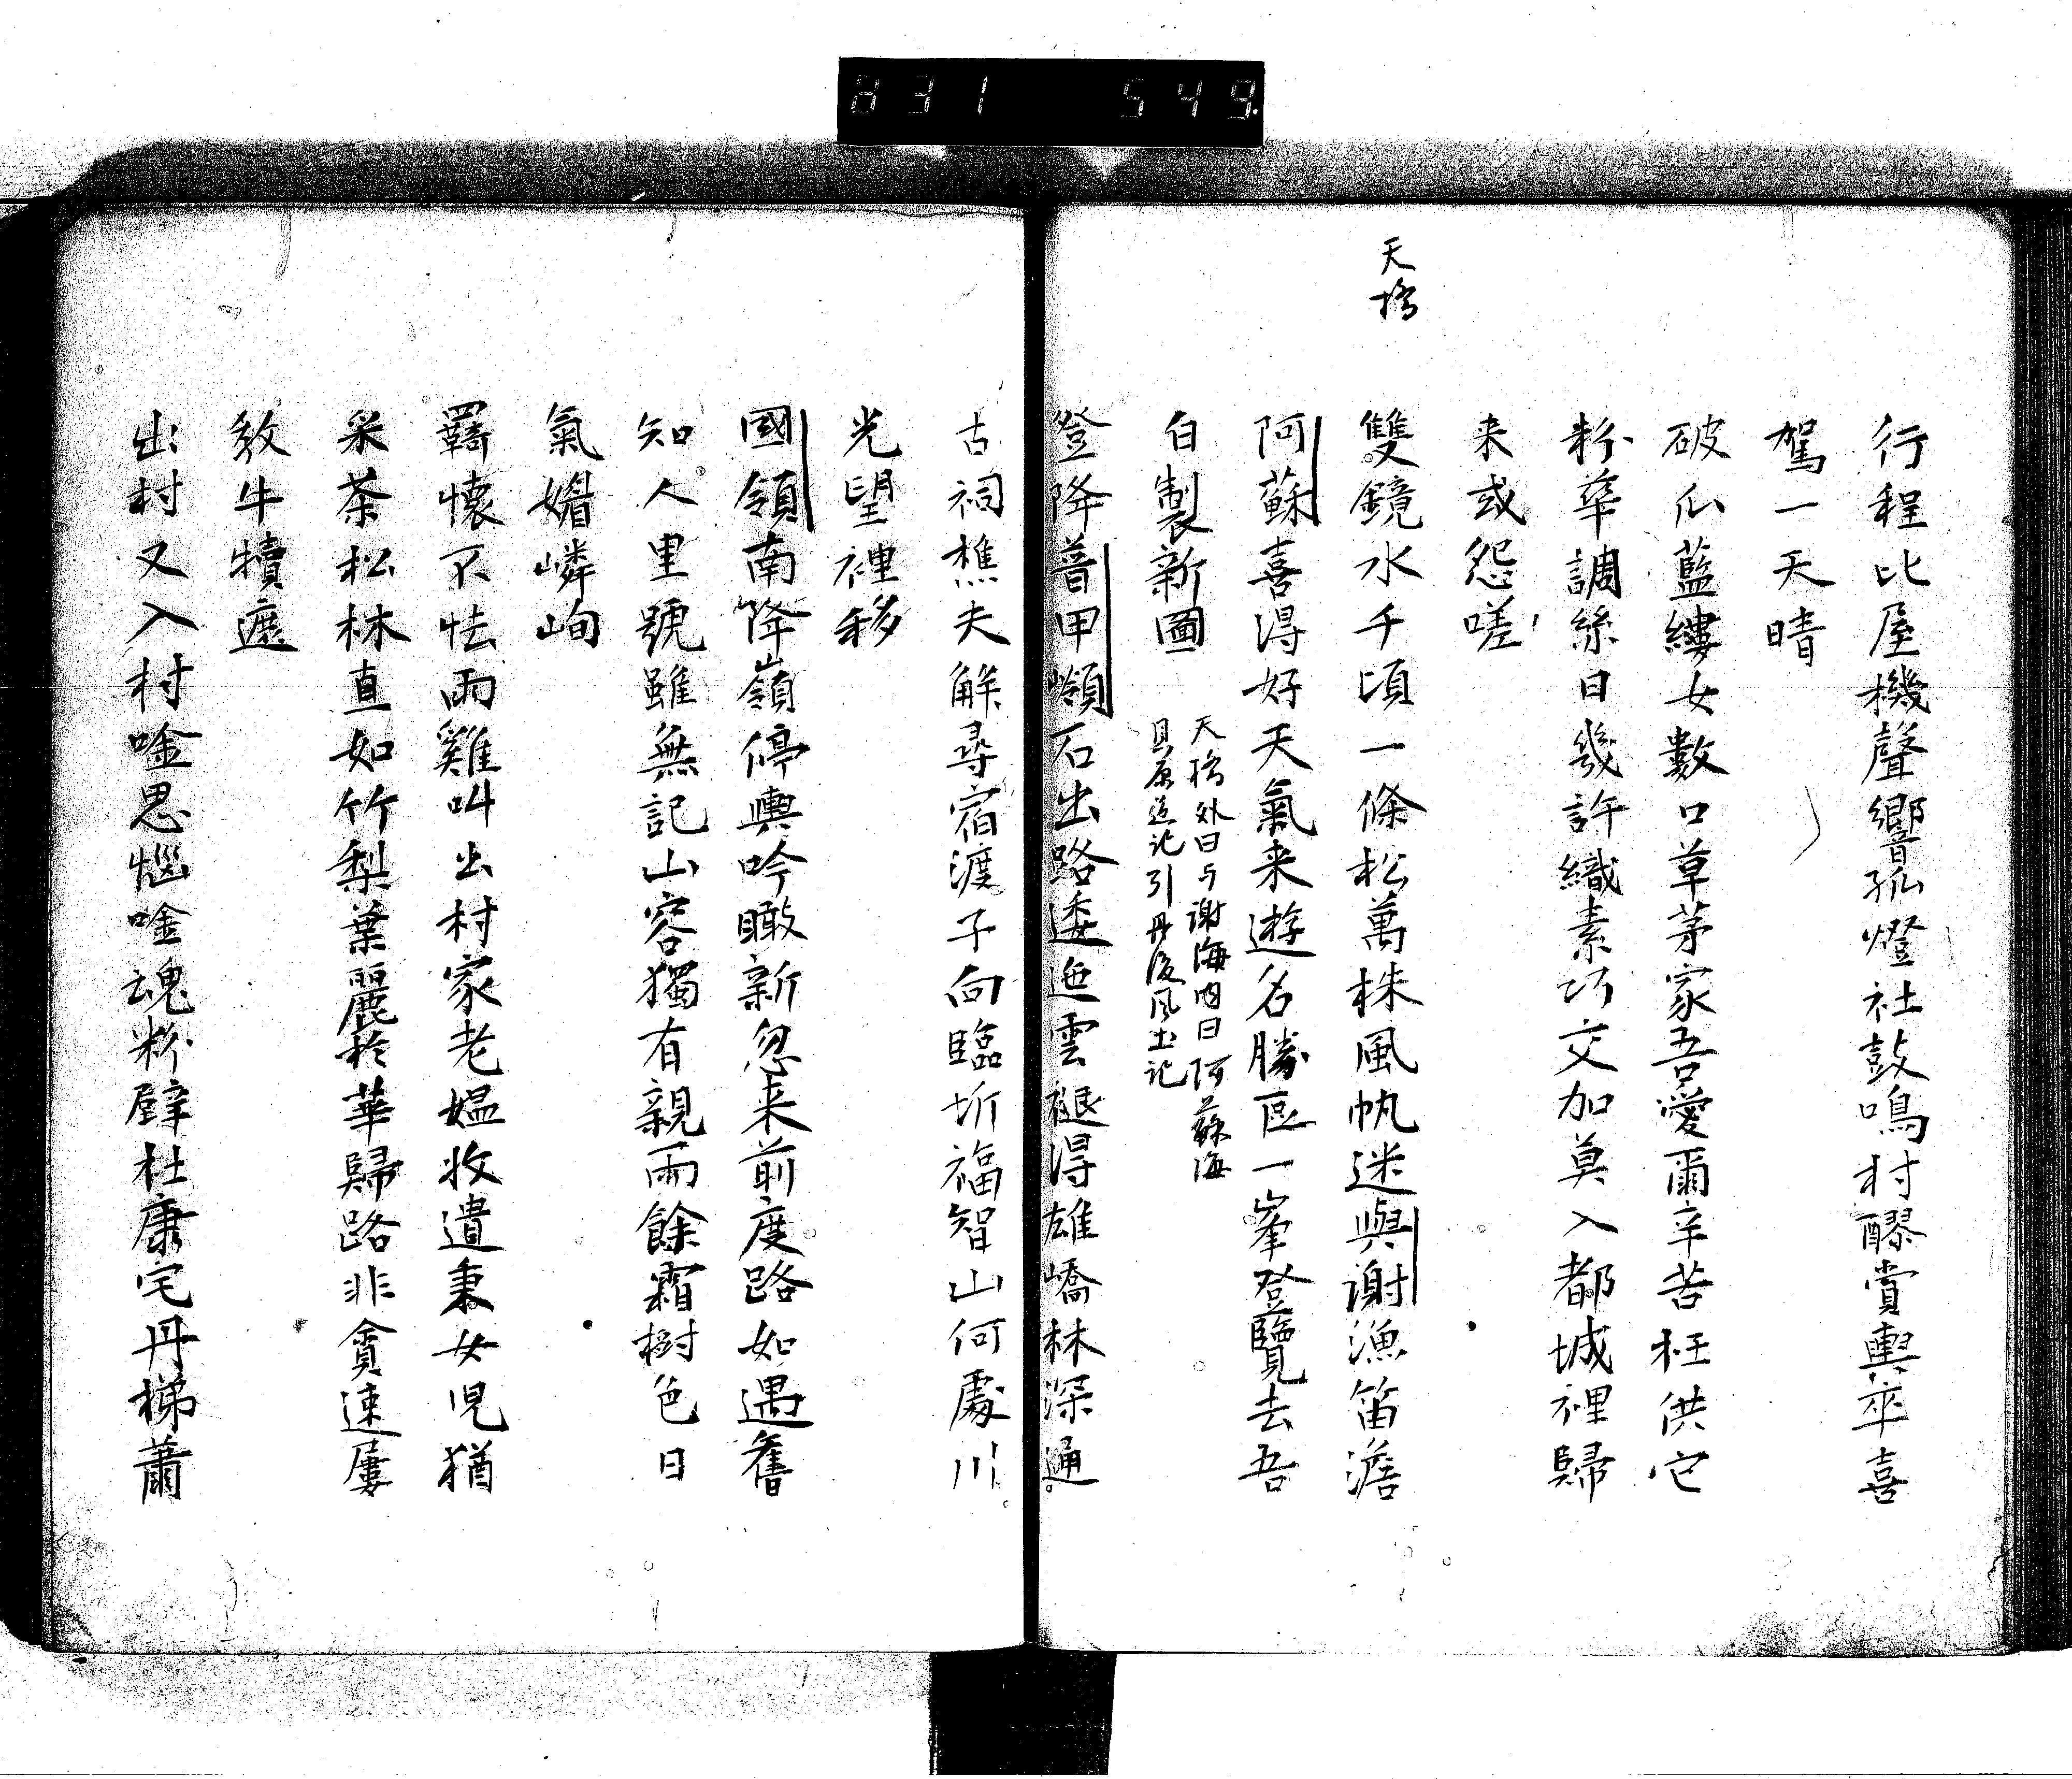 831 549
行程比屋機聲響孤燈社鼓鳴村醪賞輿卒喜
駕一天晴
破瓜藍縷女數口草茅家吾愛爾辛苦枉供它
粉華調絲日幾許織素巧交加莫入都城裡歸
来或怨嗟
天橋
雙鏡水千頃一條松萬株風帆迷與謝漁笛澹
阿蘇喜得好天氣来遊名勝區一峯登覽去吾
自製新圖
天橋外曰与謝海内曰阿蘇海
具原迃記引丹後風土記
登降普甲嶺石出路逶迤雲褪得雄嶠林深通
古祠樵夫解尋宿渡子向臨圻福智山何處川
光望裡移
國領南降嶺停輿吟瞰新忽来前度路如遇舊
知人里號雖無記山容獨有親雨餘霜樹色日
氣媚嶙峋
羇懷不怯雨雞叫出村家老媼收遺秉女児猶
采茶松林直如竹梨葉麗於華歸路非貪速屢
教牛犢遮
出村又入村唫思惱唫魂粉壁杜康宅丹梯蕭